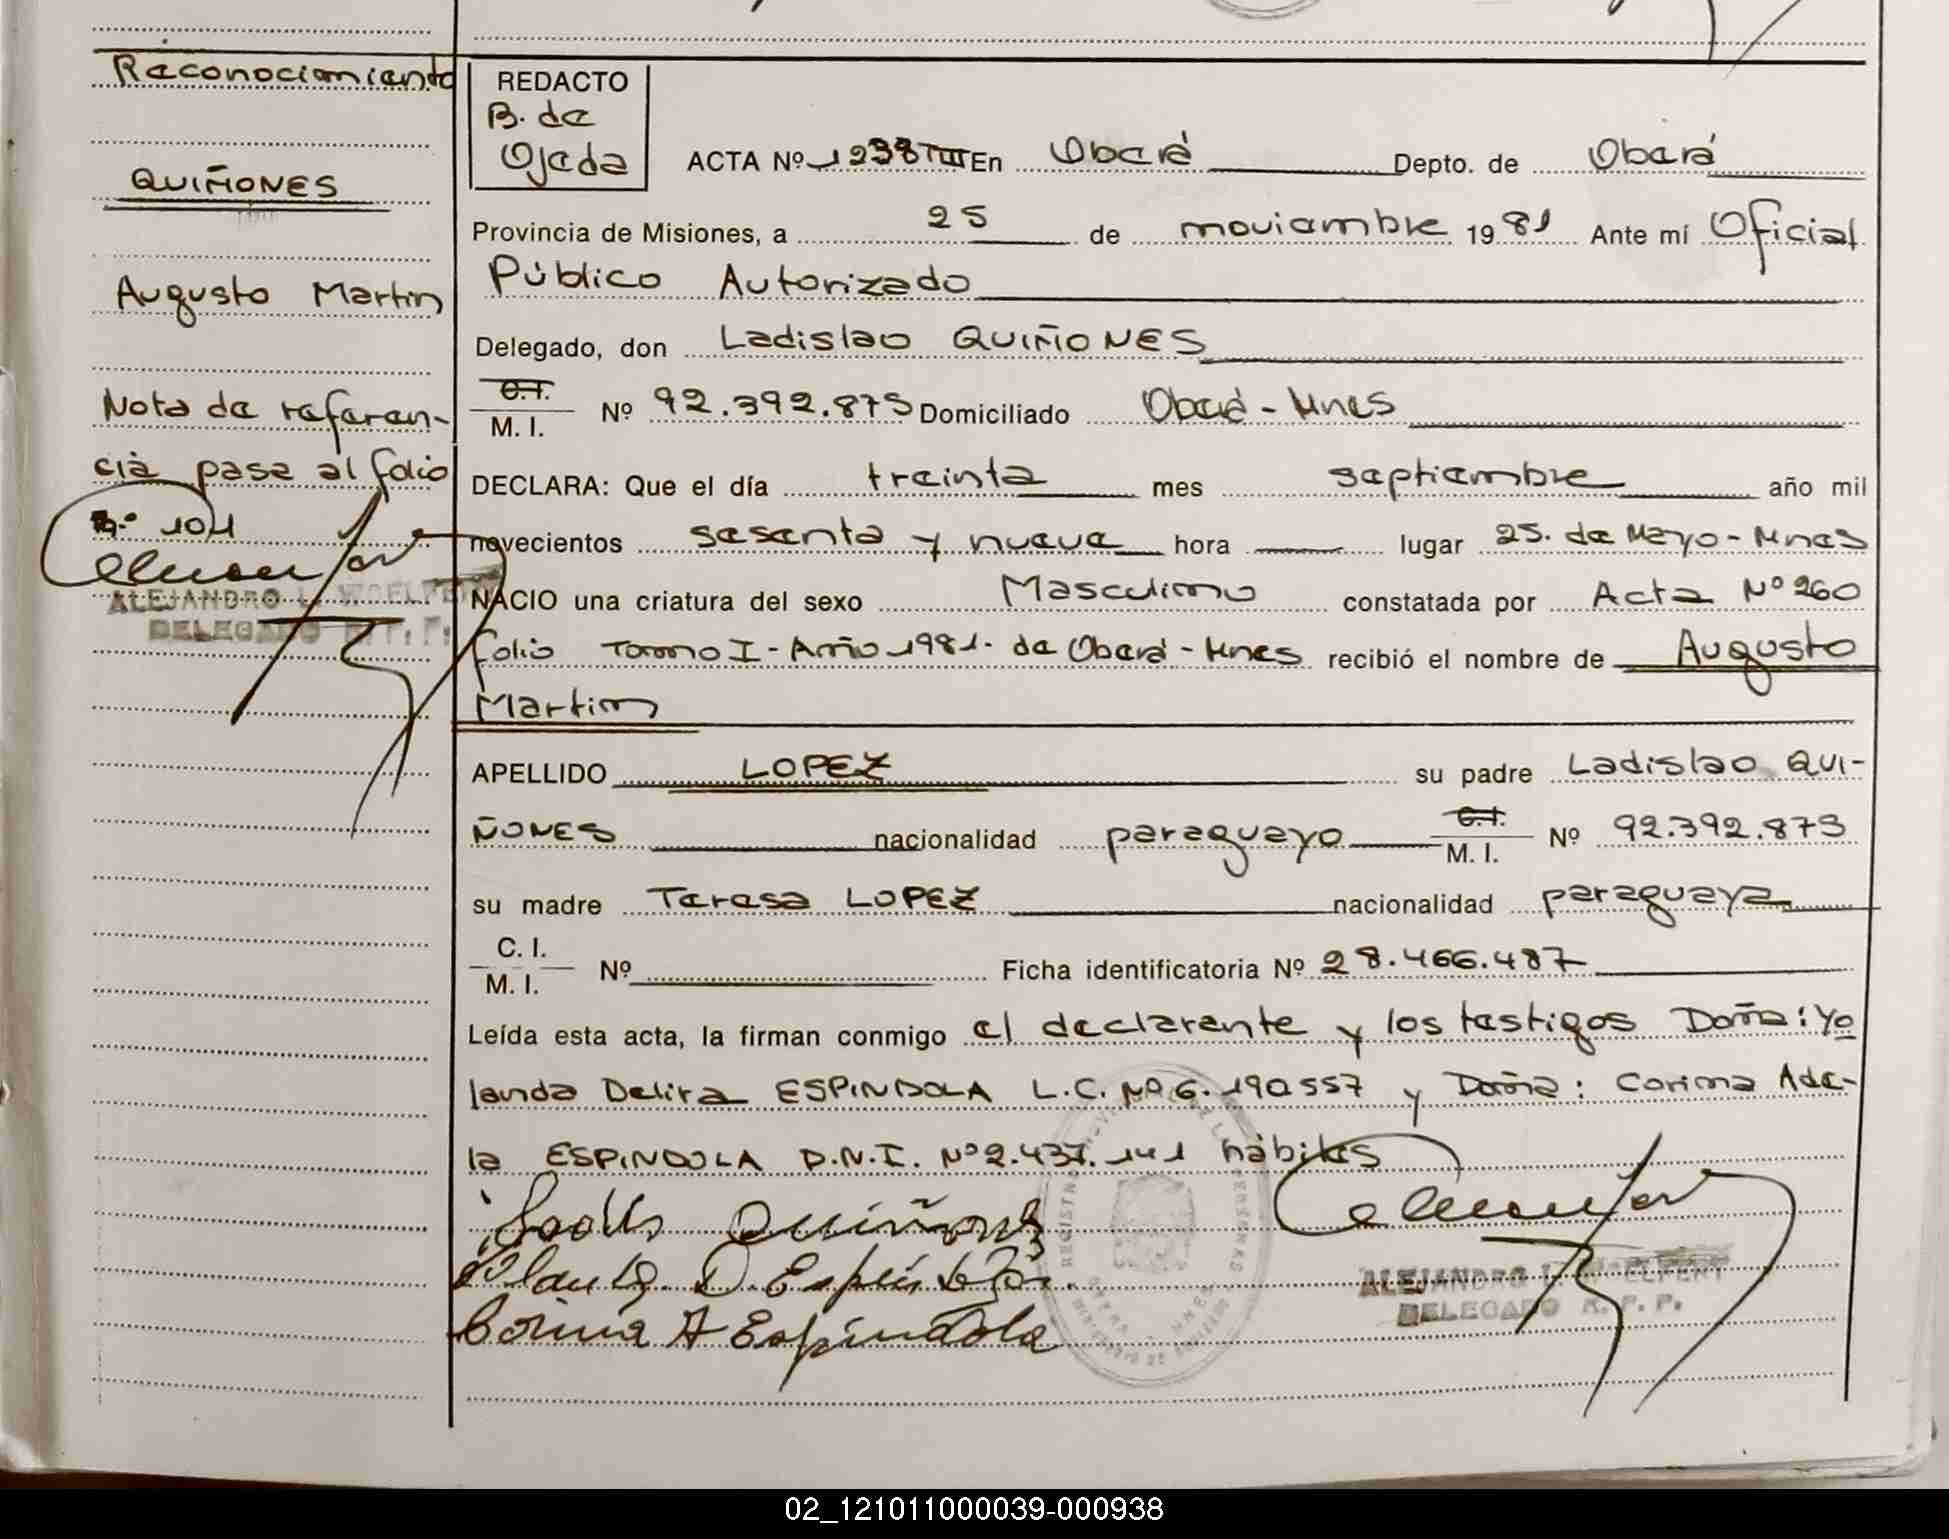 Reconocimiento
QUIÑONES
Augusto Martin
Nota de referen-
cia pasa al folio
Nº 101
ALEJANDRO L. WOELFERT
DELEGADO R. P. P.
REDACTO
B. de
Ojeda
ACTA Nº 1238 TIII En Oberá Depto. de Oberá
Provincia de Misiones, a 25 de noviembre 1981 Ante mí Oficial
Público Autorizado
Delegado, don Ladislao QUIÑONES
C.I.
M. I. Nº 92.392.875 Domiciliado Oberá - Mnes
DECLARA: Que el día treinta mes septiembre año mil
novecientos sesenta y nueve hora lugar 25. de Mayo - Mnes
NACIO una criatura del sexo Masculino constatada por Acta Nº 260
folio Tomo I - Año 1981. de Oberá - Mnes recibió el nombre de Augusto
Martin
APELLIDO LOPEZ su padre Ladislao QUI-
ÑONES nacionalidad paraguayo C.I. M. I. Nº 92.392.875
su madre Teresa LOPEZ nacionalidad paraguaya
C. I.
M. I. Nº Ficha identificatoria Nº 28.466.487
Leída esta acta, la firman conmigo el declarante y los testigos Doña: Yo
landa Delira ESPINDOLA L.C. Nº 6.190557 y Doña: Corina Ade-
la ESPINDOLA D.N.I. Nº 2.437.141 hábiles
Quiñones
Yolanda D. Espíndola.
Corina A Espíndola
ALEJANDRO L. WOELFERT
DELEGADO R. P. P.
02_121011000039-000938